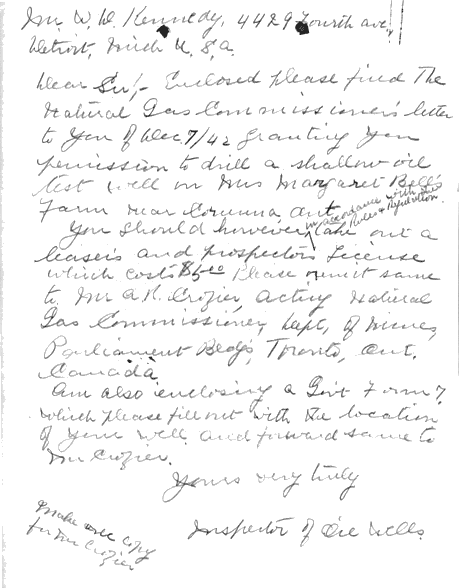 Mr. W. D. Kennedy, 4429 Fourth ave,
Detroit, Mich U.S.A.
Dear Sir,- Enclosed please find The
Natural Gas Commissioner's letter
to you of Dec 7/42 granting you
permission to drill a shallow oil
test well on Mrs Margaret Bell's
Farm near Corunna, Ont.
in accordance with the
Rules & Regulations
You should however, take out a
leasers and prospectors License
which costs $5.00 Please remit same
to Mr A.R. Crozier, acting Natural
Gas Commissioner, Dept, of Mines,
Parliament Bldgs, Toronto, Ont.
Canada
Am also enclosing a Gov't Form 7
which please fill out with the location
of your well and forward same to
Mr Crozier.
Yours very truly
Inspector of Oil Wells.
Make one copy
for Mr Crozier